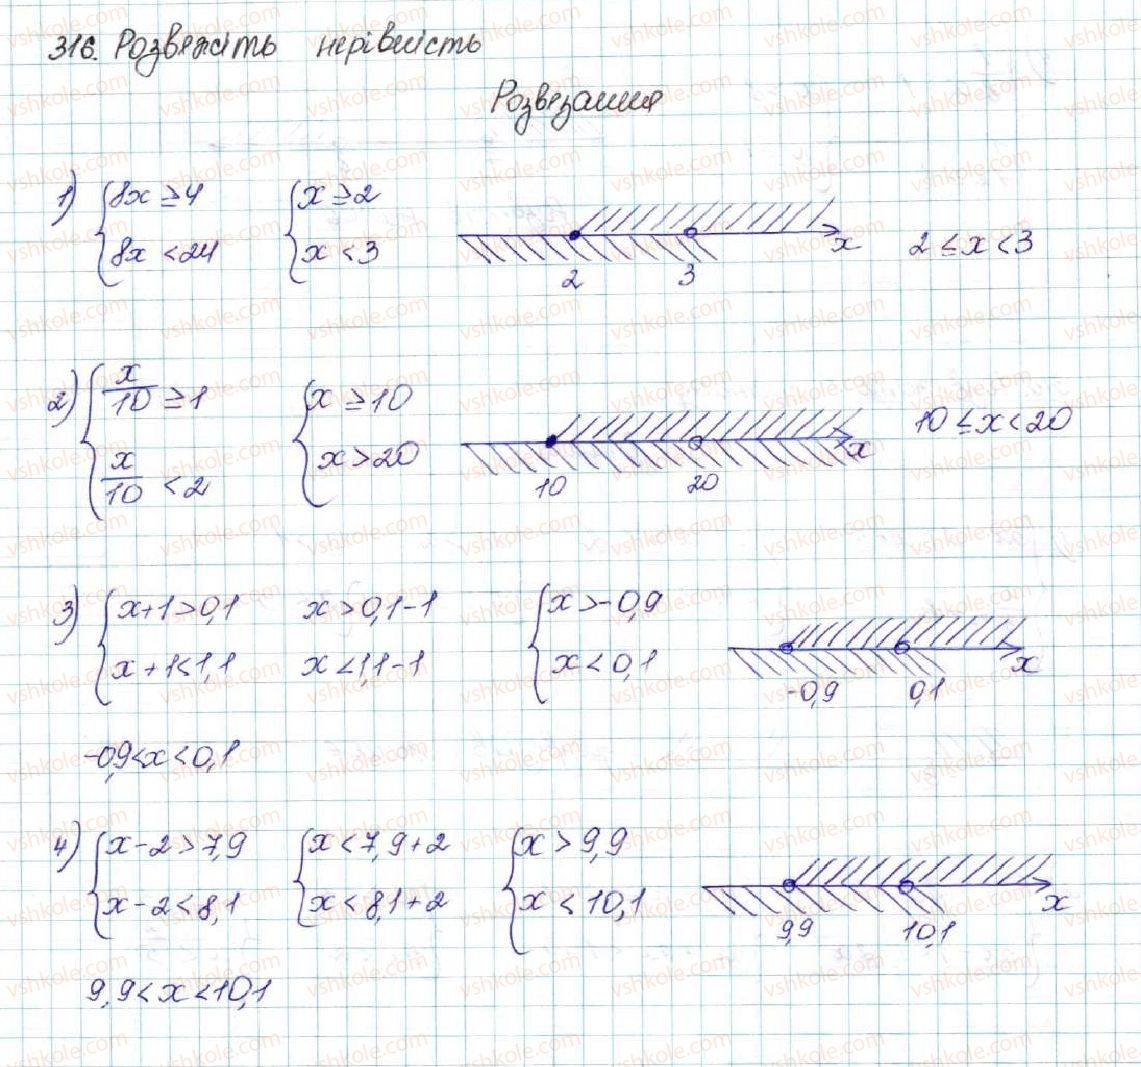 316. Розвяжіть нерівність
Розвязання
1) { 8x ≥ 4 { x ≥ 2
8x < 24 x < 3
x
2 3
2 ≤ x < 3
2) { x/10 ≥ 1 { x ≥ 10
x/10 < 2 x > 20
x
10 20
10 ≤ x < 20
3) { x+1 > 0,1 x > 0,1-1 { x > -0,9
x+1 < 1,1 x < 1,1-1 x < 0,1
x
-0,9 0,1
-0,9 < x < 0,1
4) { x-2 > 7,9 { x < 7,9+2 { x > 9,9
x-2 < 8,1 x < 8,1+2 x < 10,1
x
9,9 10,1
9,9 < x < 10,1
vshkole.com